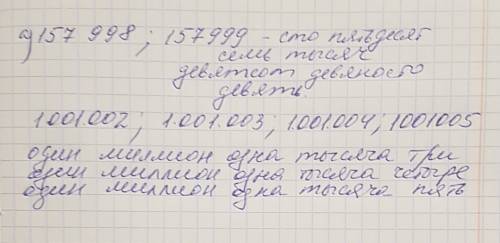 д) 157 998 ; 157999 - сто пятьдесят
семь тысяч
девятсот девяносто
девять.
1.001.002; 1.001.003; 1.001.004; 1001005
один миллион одна тысяча три
один миллион одна тысяча четыре
один миллион одна тысяча пять